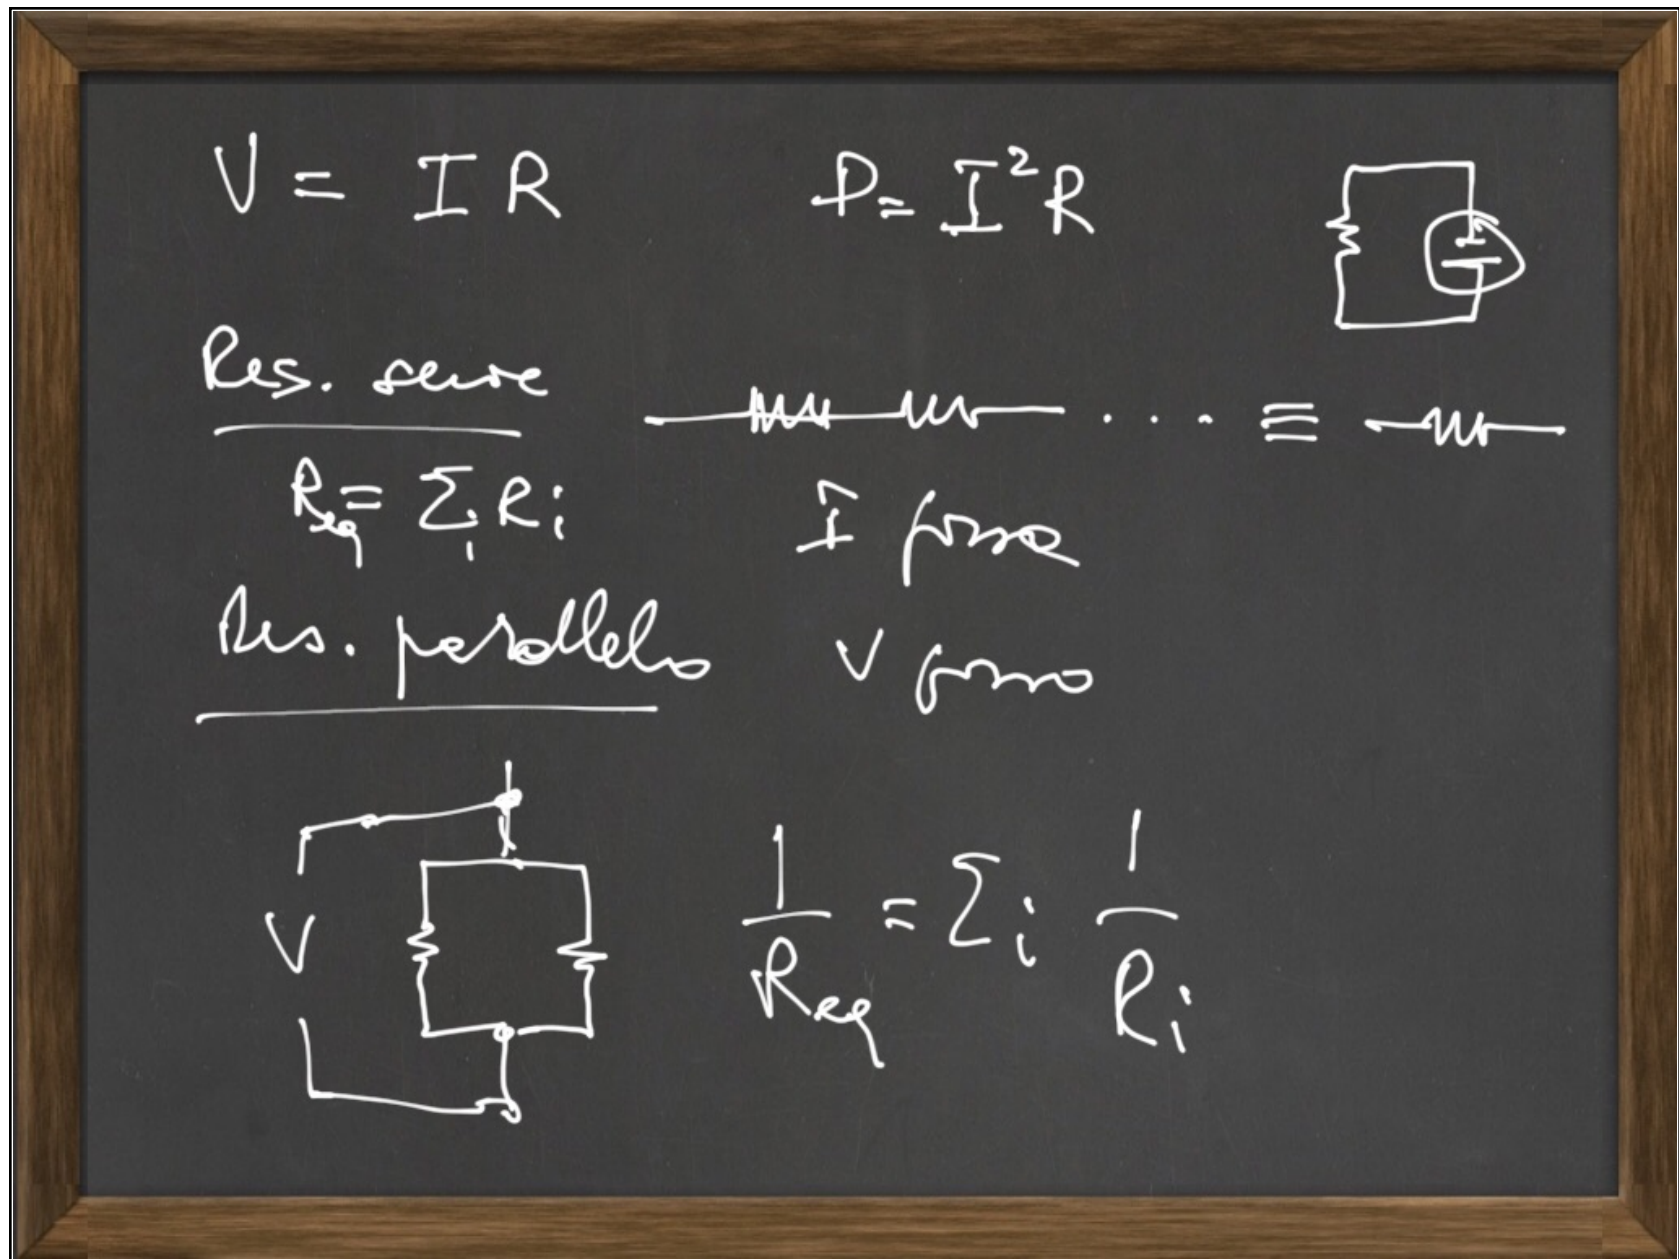 V = I R
P = I² R
Res. serie
R_eq = Σ_i R_i
I fissa
Res. parallelo
V fisso
V
1/R_eq = Σ_i 1/R_i